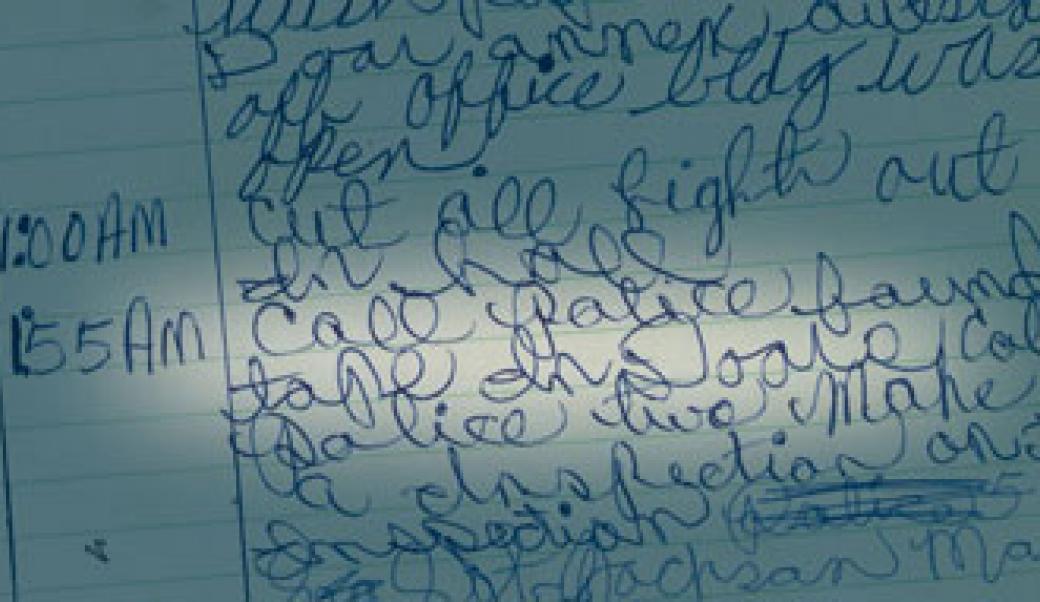 Door annex, outsid
off office bldg was
open.
1:00 AM Cut all light out
In hall
1:55 AM Call Police found
tape In Doare, Cal
Police two Make
a Inspection on
Inspection
Lt. Jackson Ma